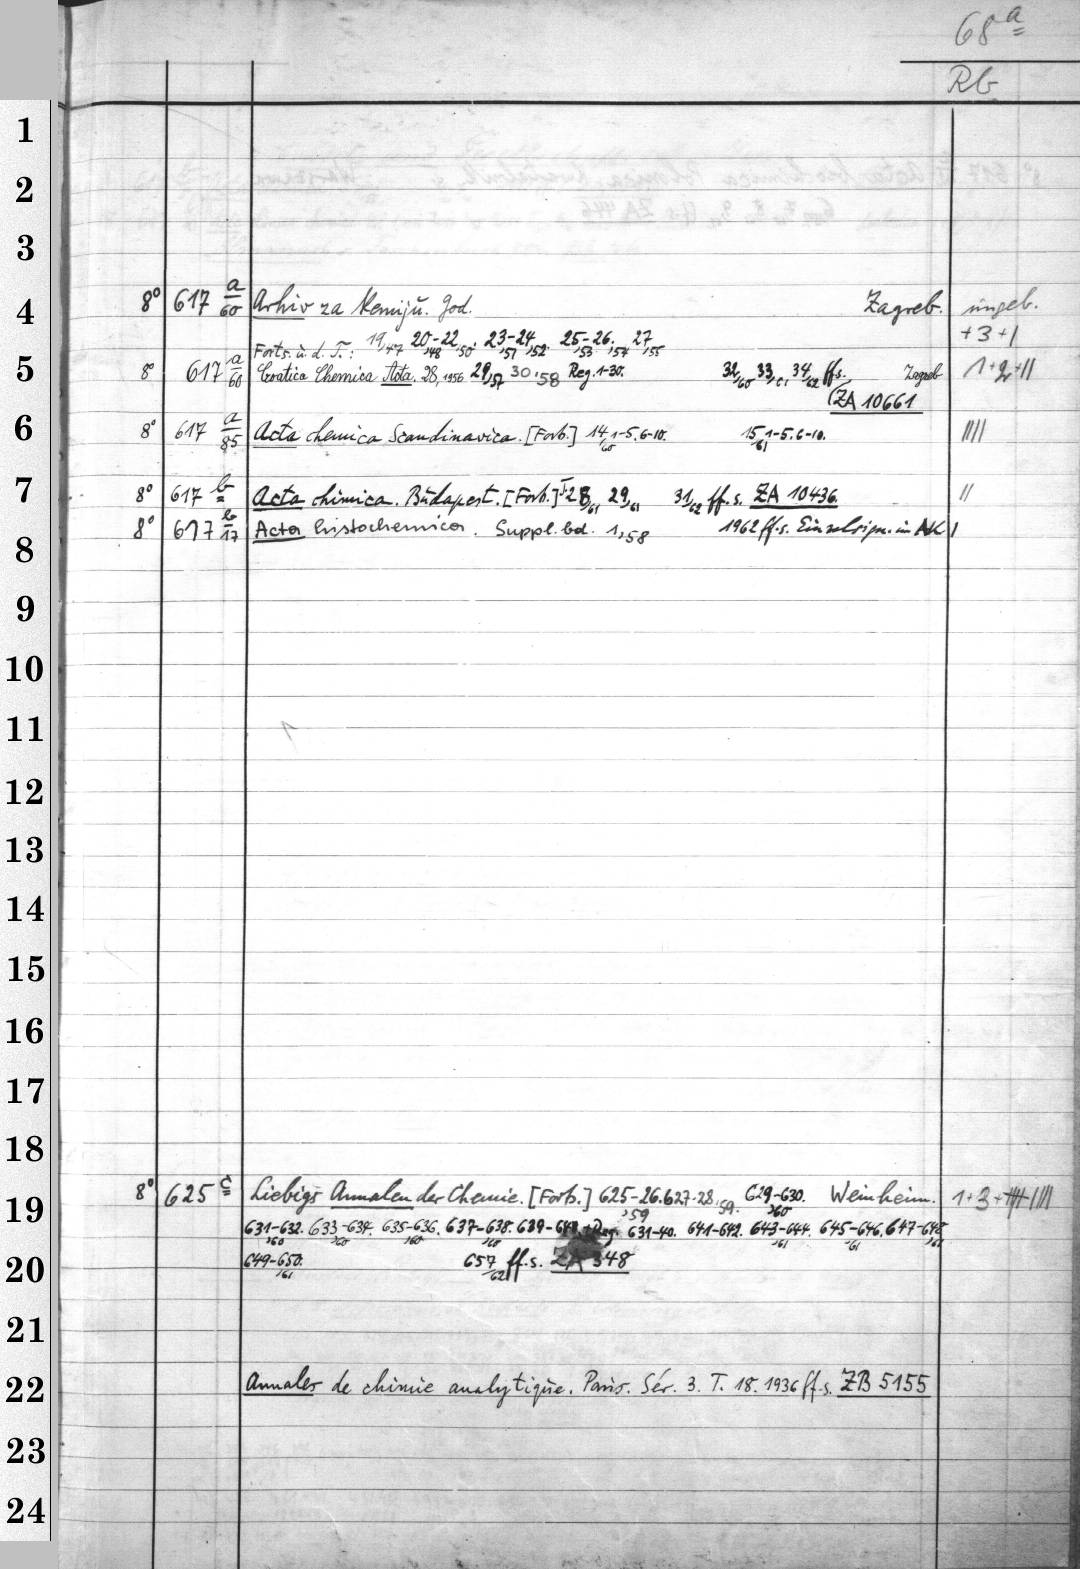 68ª
Rb
1
2
3
4 8° 617 a/60 Arhiv za Kemiju. God. Zagreb. ungeb.
19,47 20-22,48,50. 23-24,51,52. 25-26,53,54 27,55 +3+1
Forts. u. d. T.:
5 8° 617 a/60 Croatica Chemica Acta. 28, 1956 29,57 30,58 Reg. 1-30. 32/60 33/61 34/62 ff s. Zagreb 1+2+11
(ZA 10661
6 8° 617 a/85 Acta chemica Scandinavica. [Forts.] 14,60 1-5. 6-10. 15,61 1-5. 6-10. ||||
7 8° 617 b Acta chimica. Budapest. [Forts.] 28/61 29/61 31/62 ff. s. ZA 10436. ||
8 8° 617 b/17 Acta histochemica. Suppl. bd. 1,58 1962 ff. s. in AK |
9
10
11
12
13
14
15
16
17
18
19 8° 625 c Liebigs Annalen der Chemie. [Forts.] 625-26,59. 627-28,59. 629-630,60 Weinheim. 1+3+
631-632,60. 633-634,60. 635-636,60. 637-638,60. 639- Reg. 631-40. 641-642. 643-644,61. 645-646,61. 647-648,61
20 649-650,61. 657/62 ff. s. ZA 348
21
22 Annales de chimie analytique. Paris. Sér. 3. T. 18. 1936 ff. s. ZB 5155
23
24